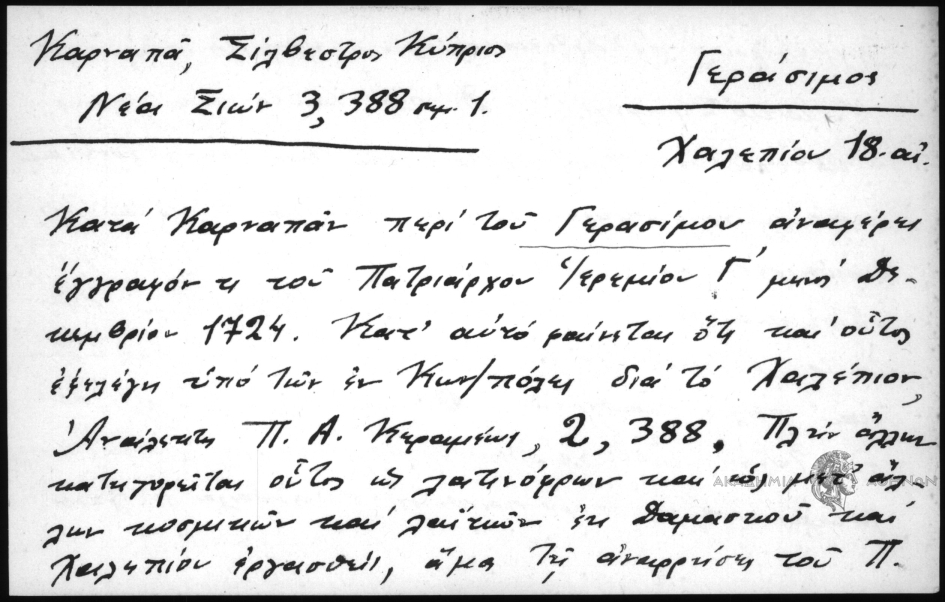 Καρναπᾶ, Σίλβεστρος Κύπριος
Νέα Σιών 3, 388 σημ. 1.
Γεράσιμος
Χαλεπίου 18. αἰ.
Κατά Καρναπᾶν περί τοῦ Γερασίμου ἀναφέρει
ἔγγραφόν τι τοῦ Πατριάρχου Ἱερεμίου Γ΄ μηνός Δε-
κεμβρίου 1724. Κατ' αὐτό φαίνεται ὅτι καί οὗτος
ἐξελέγη ὑπό τῶν ἐν Κων/πόλει διά τό Χαλέπιον,
Ἀνάλεκτα Π. Α. Κεραμέως, 2, 388. Πλήν ἄλλων
κατηγορεῖται οὗτος ὡς λατινόφρων καί μετ' ἄλ-
λων κοσμικῶν καί λαϊκῶν ἐκ Δαμασκοῦ καί
Χαλεπίου ἐργασθείς, ἅμα τῇ ἀναρρήσει τοῦ Π.
ΑΚΑΔΗΜΙΑ ΑΘΗΝΩΝ